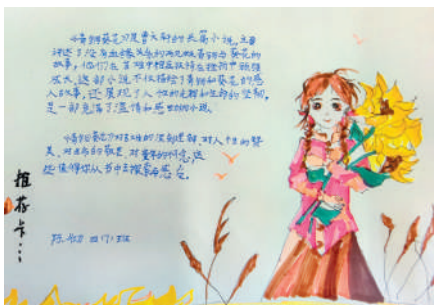 《青铜葵花》是曹文轩的长篇小说,主要
讲述了没有血缘关系的两兄妹青铜与葵花的
故事,他们在苦难中相互扶持在挫折中顽强
成长,这部小说不仅描绘了青铜和葵花的感
人故事,还展现了人性的光辉和生命的坚韧,
是一部充满了温情和感动的小说。
《青铜葵花》对苦难的深刻诠释,对人性的赞
美,对
些值得你从书中去探索与感受。
推荐卡
陈 四 班